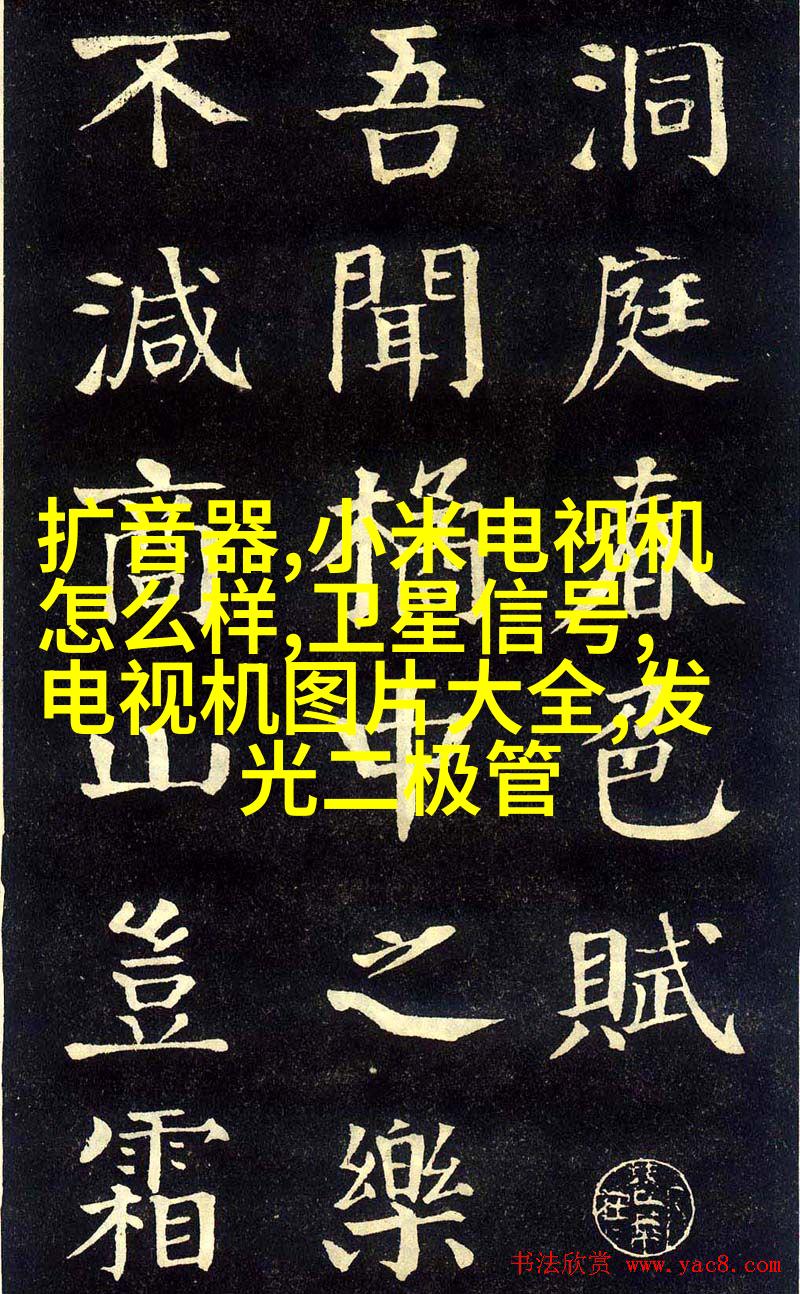 洞庭春色賦
吾聞橘中之樂
不減商山豈霜
扩音器,小米电视机
怎么样,卫星信号,
电视机图片大全,发
光二极管
书法欣赏 www.yac8.com